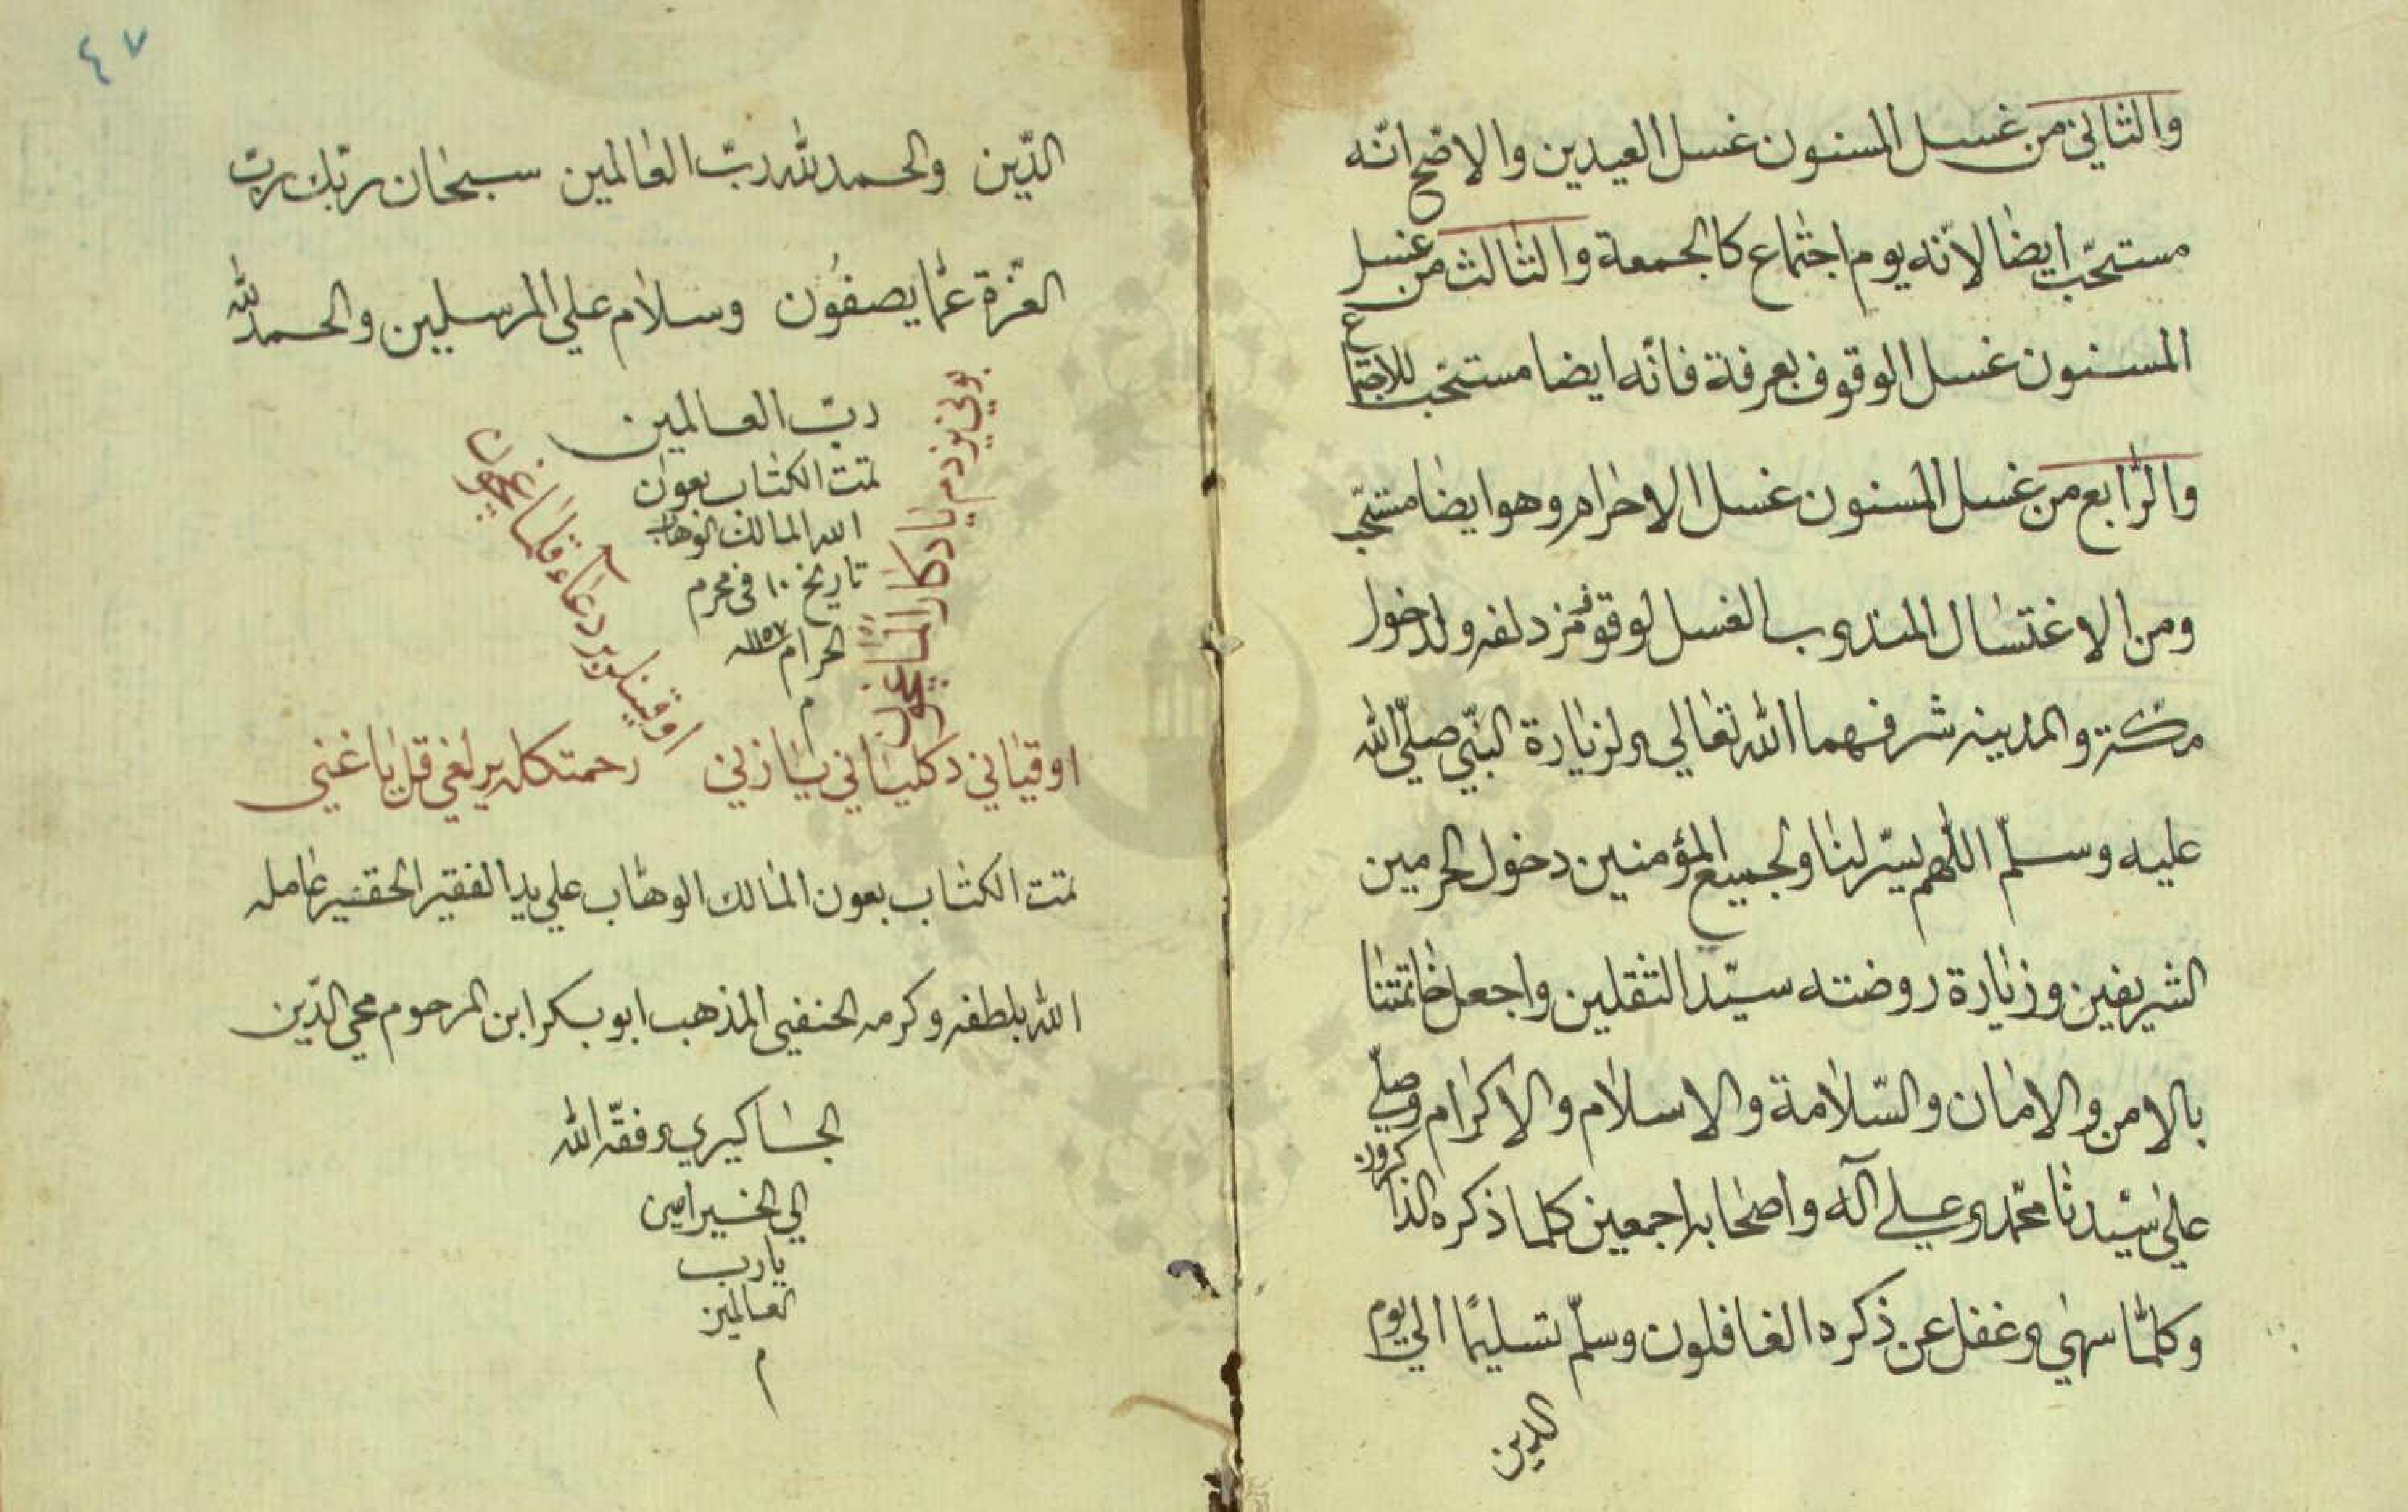 والثاني من غسل المسنون غسل العيدين والاصح انّه
مستحبّ ايضا لانّه يوم اجتماع كالجمعة والثالث من غسل
المسنون غسل الوقوف بعرفة فانّه ايضا مستحبّ للاجتماع
والرّابع من غسل المسنون غسل الاحرام وهو ايضا مستحبّ
ومن الاغتسال المندوب الغسل لوقوف مزدلفه ولدخول
مكّة والمدينه شرفهما الله تعالي ولزيارة النبّي صلّي الله
عليه وسلّم اللّهم يسّر لنا ولجميع المؤمنين دخول الحرمين
الشريفين وزيارة روضته سيّد الثقلين واجعل خاتمتنا
بالامن والامان والسّلامة والاسلام والاكرام وصلّي
علي سيّدنا محمّد وعلي آله واصحابه اجمعين كلما ذكره الذاكرون
وكلّما سهي وغفل عن ذكره الغافلون وسلّم تسليمًا الي يوم
الدين
٤٧
الدّين والحمد لله ربّ العالمين سبحان ربّك ربّ
العزّة عمّا يصفُون وسلام علي المرسلين والحمد لله
ربّ العالمين
تمت الكتاب بعون
الله المالك الوهاب
تاريخ ١٠ في محرم
الحرام سنه ١١٥٧
م
بوني يزدم يادكار
اوقيناني دكليناني يازني رحمتكله يرلغي قل يا غني
تمت الكتاب بعون المالك الوهّاب علي يد الفقير الحقير عامله
الله بلطفه وكرمه الحنفيي المذهب ابو بكر ابن المرحوم محي الدّين
الجساكيري وفقّه الله
الي الخير امين
يا رب
العالمين
م